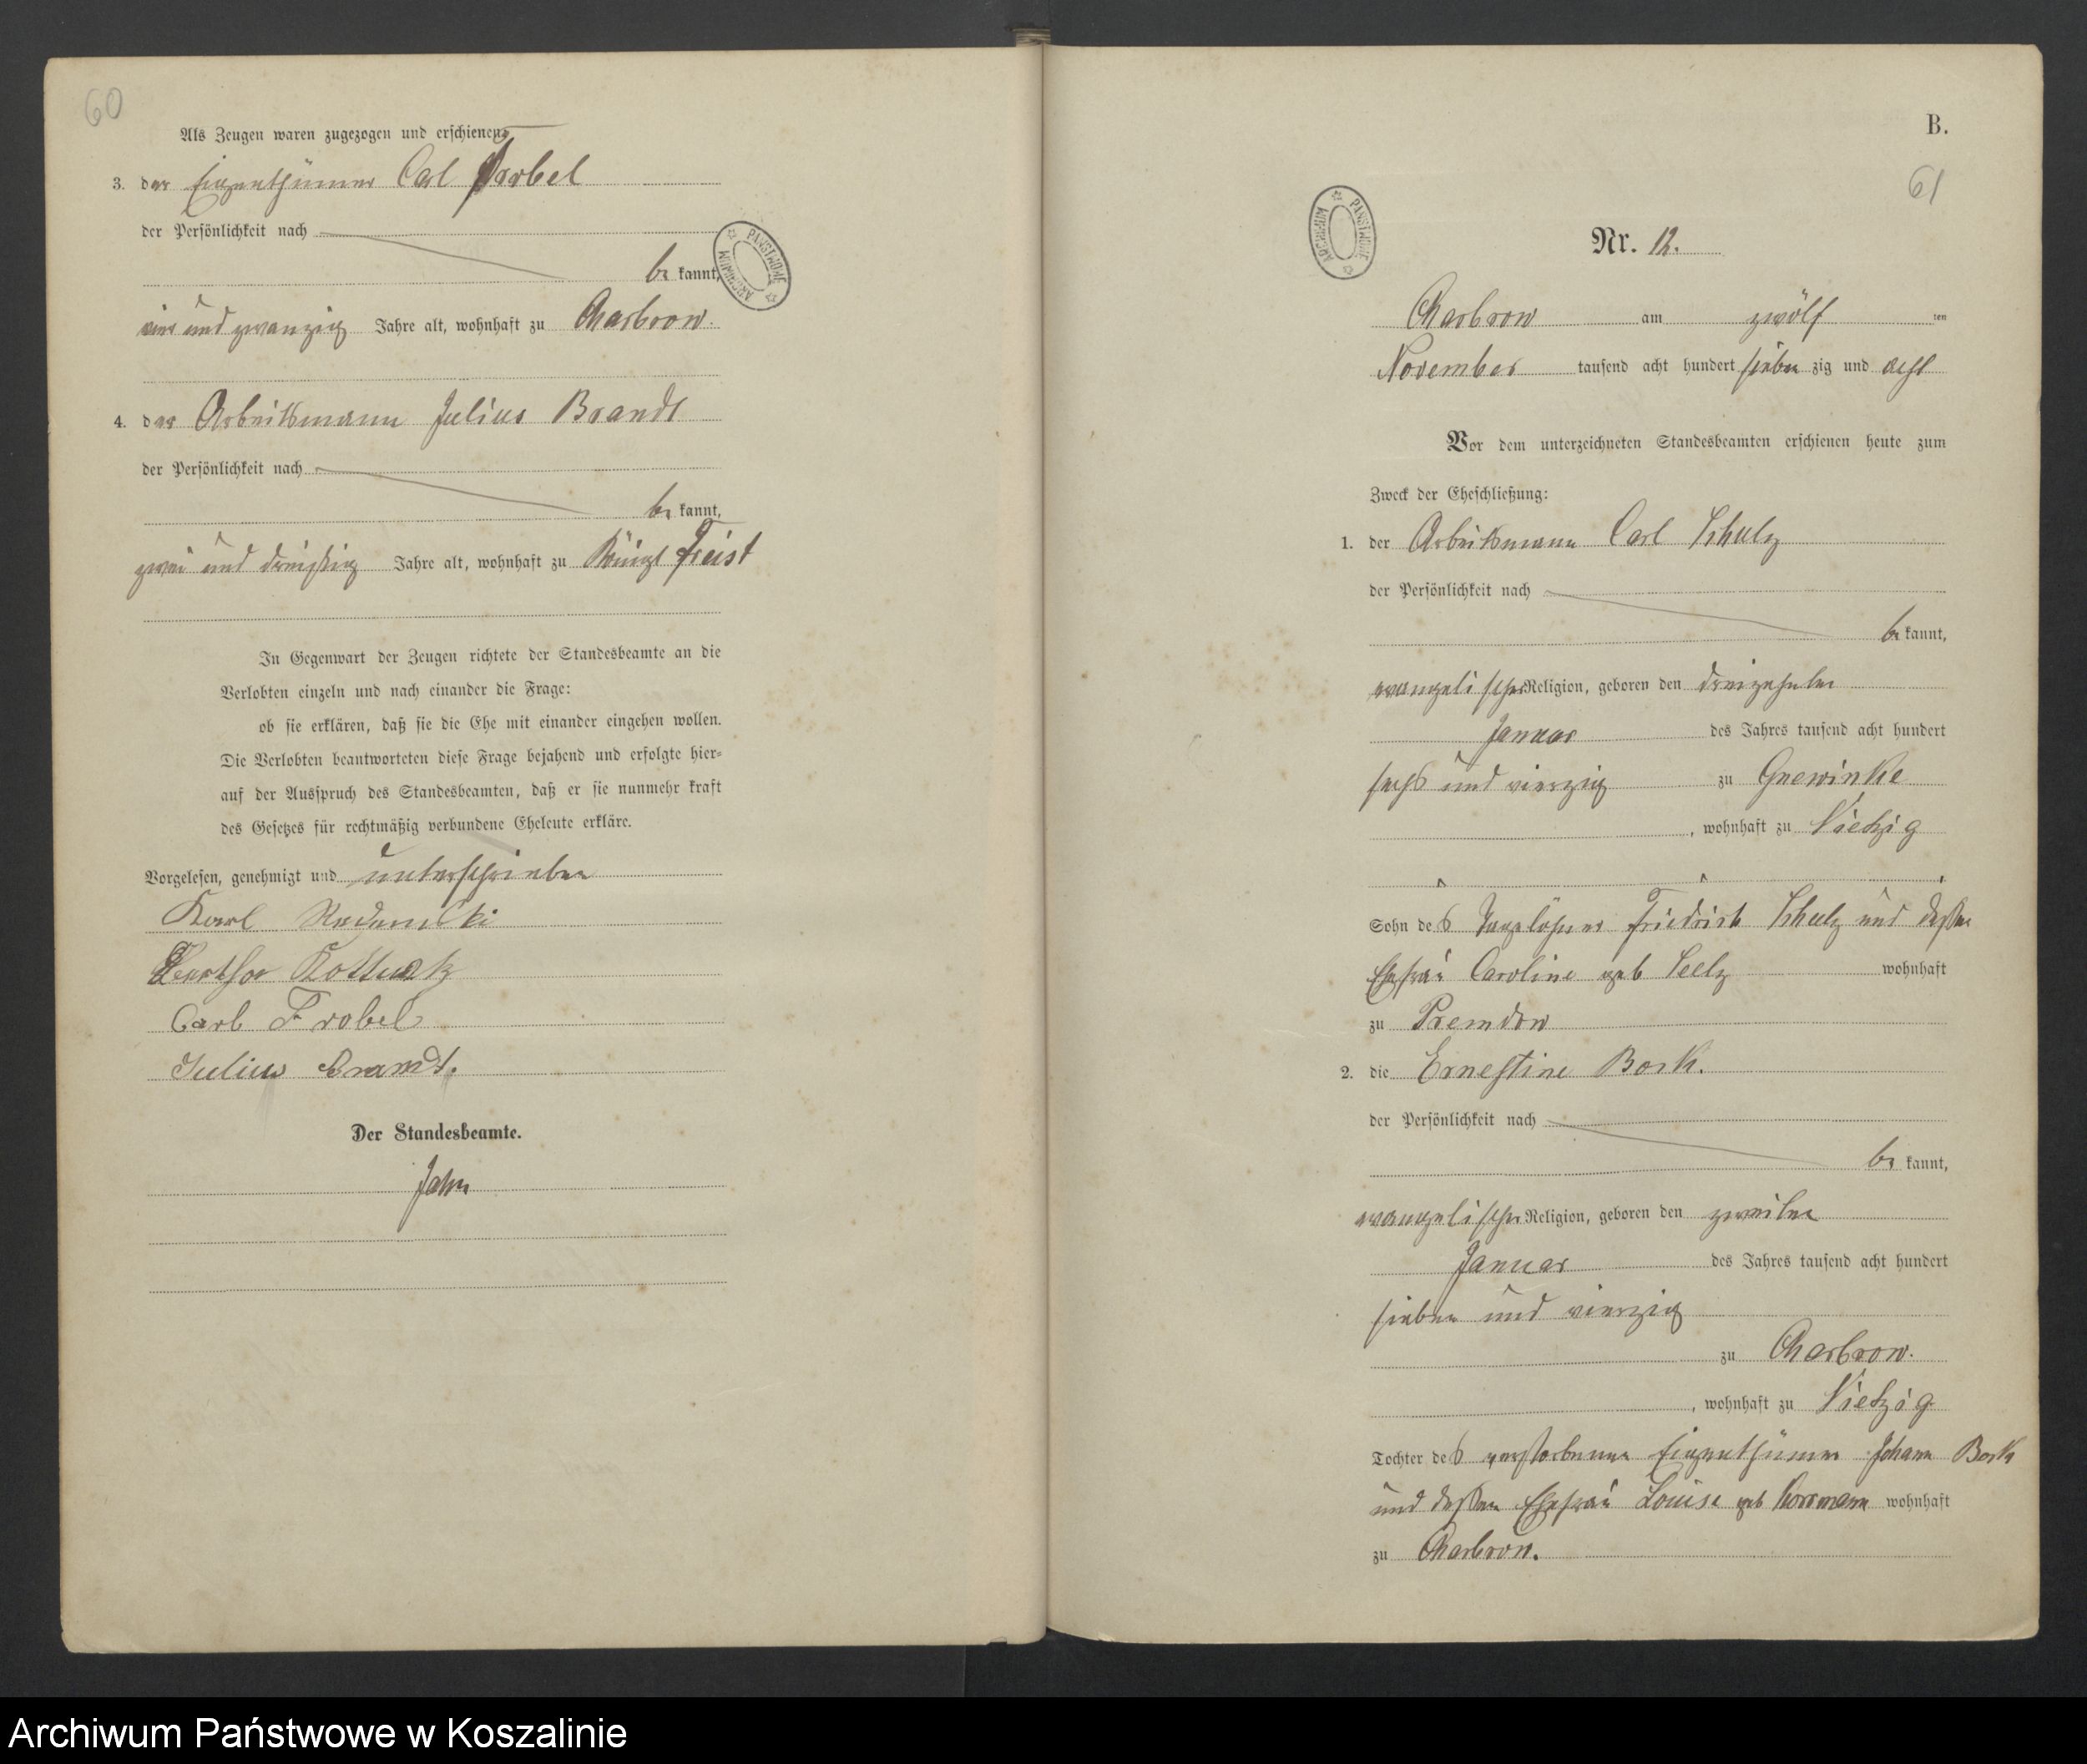 60
Als Zeugen waren zugezogen und erschienen:
3. der Eigenthümer Carl Frobel
der Persönlichkeit nach
be kannt,
ein und zwanzig Jahre alt, wohnhaft zu Charbrow.
4. der Arbeitsmann Julius Brandt
der Persönlichkeit nach
be kannt,
zwei und dreißig Jahre alt, wohnhaft zu Freist
In Gegenwart der Zeugen richtete der Standesbeamte an die
Verlobten einzeln und nach einander die Frage:
ob sie erklären, daß sie die Ehe mit einander eingehen wollen.
Die Verlobten beantworteten diese Frage bejahend und erfolgte hier-
auf der Ausspruch des Standesbeamten, daß er sie nunmehr kraft
des Gesetzes für rechtmäßig verbundene Eheleute erkläre.
Vorgelesen, genehmigt und unterschrieben
Karl
Carl Frobel
Julius Brandt.
Der Standesbeamte.
Jahn
ARCHIWUM PAŃSTWOWE
B.
61
ARCHIWUM PAŃSTWOWE
Nr. 12.
Charbrow am zwölf ten
November tausend acht hundert sieben zig und acht
Vor dem unterzeichneten Standesbeamten erschienen heute zum
Zweck der Eheschließung:
1. der Arbeitsmann Carl Schulz
der Persönlichkeit nach
be kannt,
evangelischer Religion, geboren den dreizehnten
Januar des Jahres tausend acht hundert
sechs und vierzig zu Gnewinke
, wohnhaft zu Vietzig
Sohn des Tagelöhner Friedrich Schulz und dessen
Ehefrau Caroline geb Seelz wohnhaft
zu
2. die Ernestine Bork.
der Persönlichkeit nach
be kannt,
evangelischer Religion, geboren den zweiten
Januar des Jahres tausend acht hundert
sieben und vierzig
zu Charbrow.
, wohnhaft zu Vietzig
Tochter des verstorbenen Eigenthümer Johann Bork
und dessen Ehefrau Louise geb wohnhaft
zu Charbrow.
Archiwum Państwowe w Koszalinie